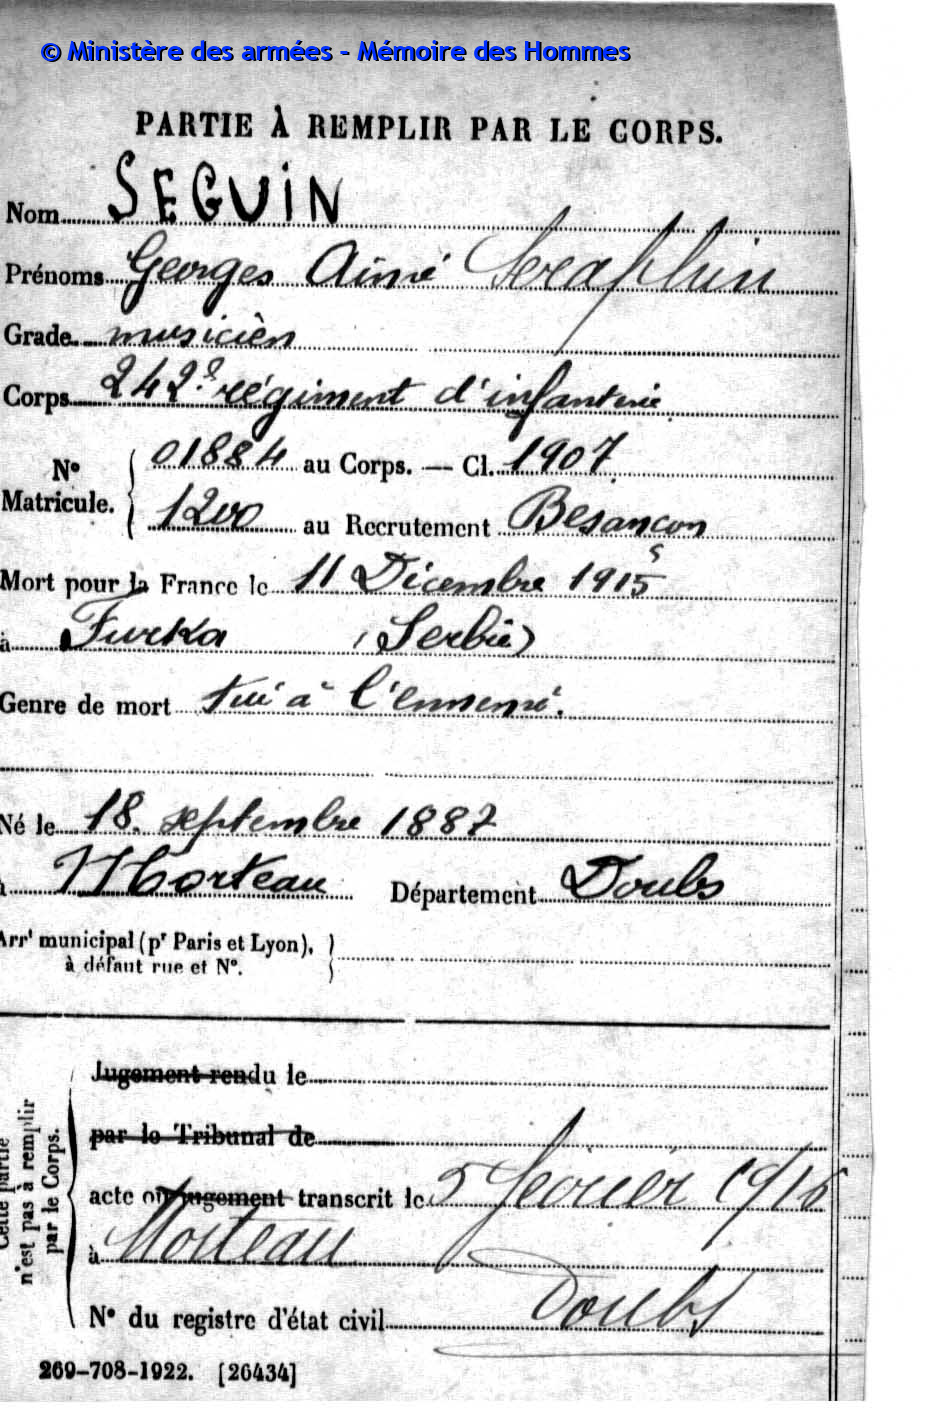 © Ministère des armées - Mémoire des Hommes
PARTIE À REMPLIR PAR LE CORPS.
Nom SEGUIN
Prénoms Georges Aimé Seraphin
Grade musicien
Corps 242e régiment d'infanterie
N° Matricule. { 01884 au Corps. — Cl. 1907
1200 au Recrutement Besançon
Mort pour la France le 11 Décembre 1915
à Furka (Serbie)
Genre de mort tué à l'ennemi.
Né le 18 septembre 1887
à Morteau Département Doubs
Arrt municipal (pr Paris et Lyon), }
à défaut rue et N°.
Cette partie n'est pas à remplir par le Corps.
Jugement rendu le
par le Tribunal de
acte ou jugement transcrit le 5 février 1916
à Morteau
Doubs
N° du registre d'état civil
269-708-1922. [26434]